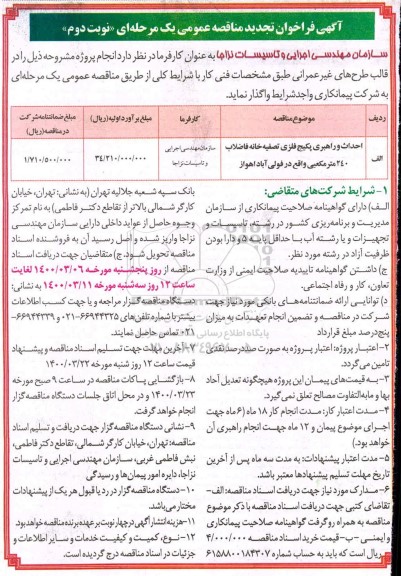 آگهی فراخوان تجدید مناقصه عمومی یک مرحله‌ای «نوبت دوم»
سازمان مهندسی اجرایی و تاسیسات نزاجا به عنوان کارفرما در نظر دارد انجام پروژه مشروحه ذیل را در
قالب طرح‌های غیرعمرانی طبق مشخصات فنی کار با شرایط کلی از طریق مناقصه عمومی یک مرحله‌ای
به شرکت پیمانکاری واجد شرایط واگذار نماید.
ردیف موضوع مناقصه کارفرما مبلغ برآورد اولیه (ریال) مبلغ ضمانتنامه شرکت در مناقصه (ریال)
الف احداث و راهبری پکیج فلزی تصفیه خانه فاضلاب ۲۴۰ متر مکعبی واقع در قولی آباد اهواز سازمان مهندسی اجرایی و تاسیسات نزاجا ۳۴/۲۱۰/۰۰۰/۰۰۰ ۱/۷۱۰/۵۰۰/۰۰۰
۱- شرایط شرکت‌های متقاضی:
الف) دارای گواهینامه صلاحیت پیمانکاری از سازمان
مدیریت و برنامه‌ریزی کشور در رشته تاسیسات و
تجهیزات و یا رشته آب با حداقل پایه دو دارا بودن
ظرفیت آزاد در رشته مورد نظر.
ج) داشتن گواهینامه تاییدیه صلاحیت ایمنی از وزارت
تعاون، کار و رفاه اجتماعی.
د) توانایی ارائه ضمانتنامه‌های بانکی مورد نیاز جهت
شرکت در مناقصه و تضمین انجام تعهدات به میزان
پنج درصد مبلغ قرارداد
۲- اعتبار پروژه: اعتبار پروژه به صورت صد درصد نقدی
تامین می‌گردد.
۳- به قیمت‌های پیمان این پروژه هیچگونه تعدیل آحاد
بها و مابه‌التفاوت مصالح تعلق نمی‌گیرد.
۴- مدت اعتبار کار: مدت انجام کار ۱۸ ماه (۶ ماه جهت
اجرای موضوع پیمان و ۱۲ ماه جهت انجام راهبری آن
خواهد بود.)
۵- مدت اعتبار پیشنهادات: به مدت سه ماه پس از آخرین
تاریخ مهلت تسلیم پیشنهادها معتبر باشد.
۶- مدارک مورد نیاز جهت دریافت اسناد مناقصه: الف-
تقاضای کتبی جهت دریافت اسناد مناقصه با ذکر موضوع
مناقصه به همراه رو گرفت گواهینامه صلاحیت پیمانکاری
و ایمنی -ب- قیمت خرید اسناد مناقصه ۴/۰۰۰/۰۰۰
ریال است که باید به حساب شماره ۶۱۵۸۸۰۰۱۸۴۳۰۷
بانک سپه شعبه جلالیه تهران (به نشانی: تهران، خیابان
کارگر شمالی بالاتر از تقاطع دکتر فاطمی) به نام تمرکز
وجوه حاصل از عواید داخلی دارایی سازمان مهندسی
نزاجا واریز شده و اصل رسید آن به فروشنده اسناد
مناقصه تحویل شود. ج) متقاضیان جهت دریافت اسناد
مناقصه از روز پنجشنبه مورخه ۱۴۰۰/۰۳/۰۶ لغایت
ساعت ۱۲ روز سه شنبه مورخه ۱۴۰۰/۰۳/۱۱ به نشانی:
دستگاه مناقصه گزار مراجعه و یا جهت کسب اطلاعات
بیشتر با شماره تلفن‌های ۶۶۹۴۴۳۲۵-۰۲۱ و ۶۶۹۴۴۳۳۹-
۰۲۱ تماس حاصل نمایند.
۷- آخرین مهلت جهت تسلیم اسناد مناقصه و پیشنهاد
قیمت ساعت ۱۲ روز شنبه مورخه ۱۴۰۰/۰۳/۲۲
۸- بازگشایی پاکات مناقصه در ساعت ۹ صبح مورخه
۱۴۰۰/۰۳/۲۳ و در محل اتاق جلسات دستگاه مناقصه گزار
انجام خواهد گرفت.
۹- نشانی دستگاه مناقصه گزار جهت دریافت و تسلیم اسناد
مناقصه: تهران، خیابان کارگر شمالی، تقاطع دکتر فاطمی،
نبش فاطمی غربی، سازمان مهندسی اجرایی و تاسیسات
نزاجا، دایره امور پیمان‌ها و رسیدگی
۱۰- دستگاه مناقصه گزار در رد یا قبول هر یک از پیشنهادات
مختار می‌باشد.
۱۱- هزینه انتشار آگهی در چهار نوبت بر عهده برنده مناقصه خواهد بود
۱۲- نوع، کمیت و کیفیت خدمات و سایر اطلاعات و
جزئیات در اسناد مناقصه درج گردیده است.